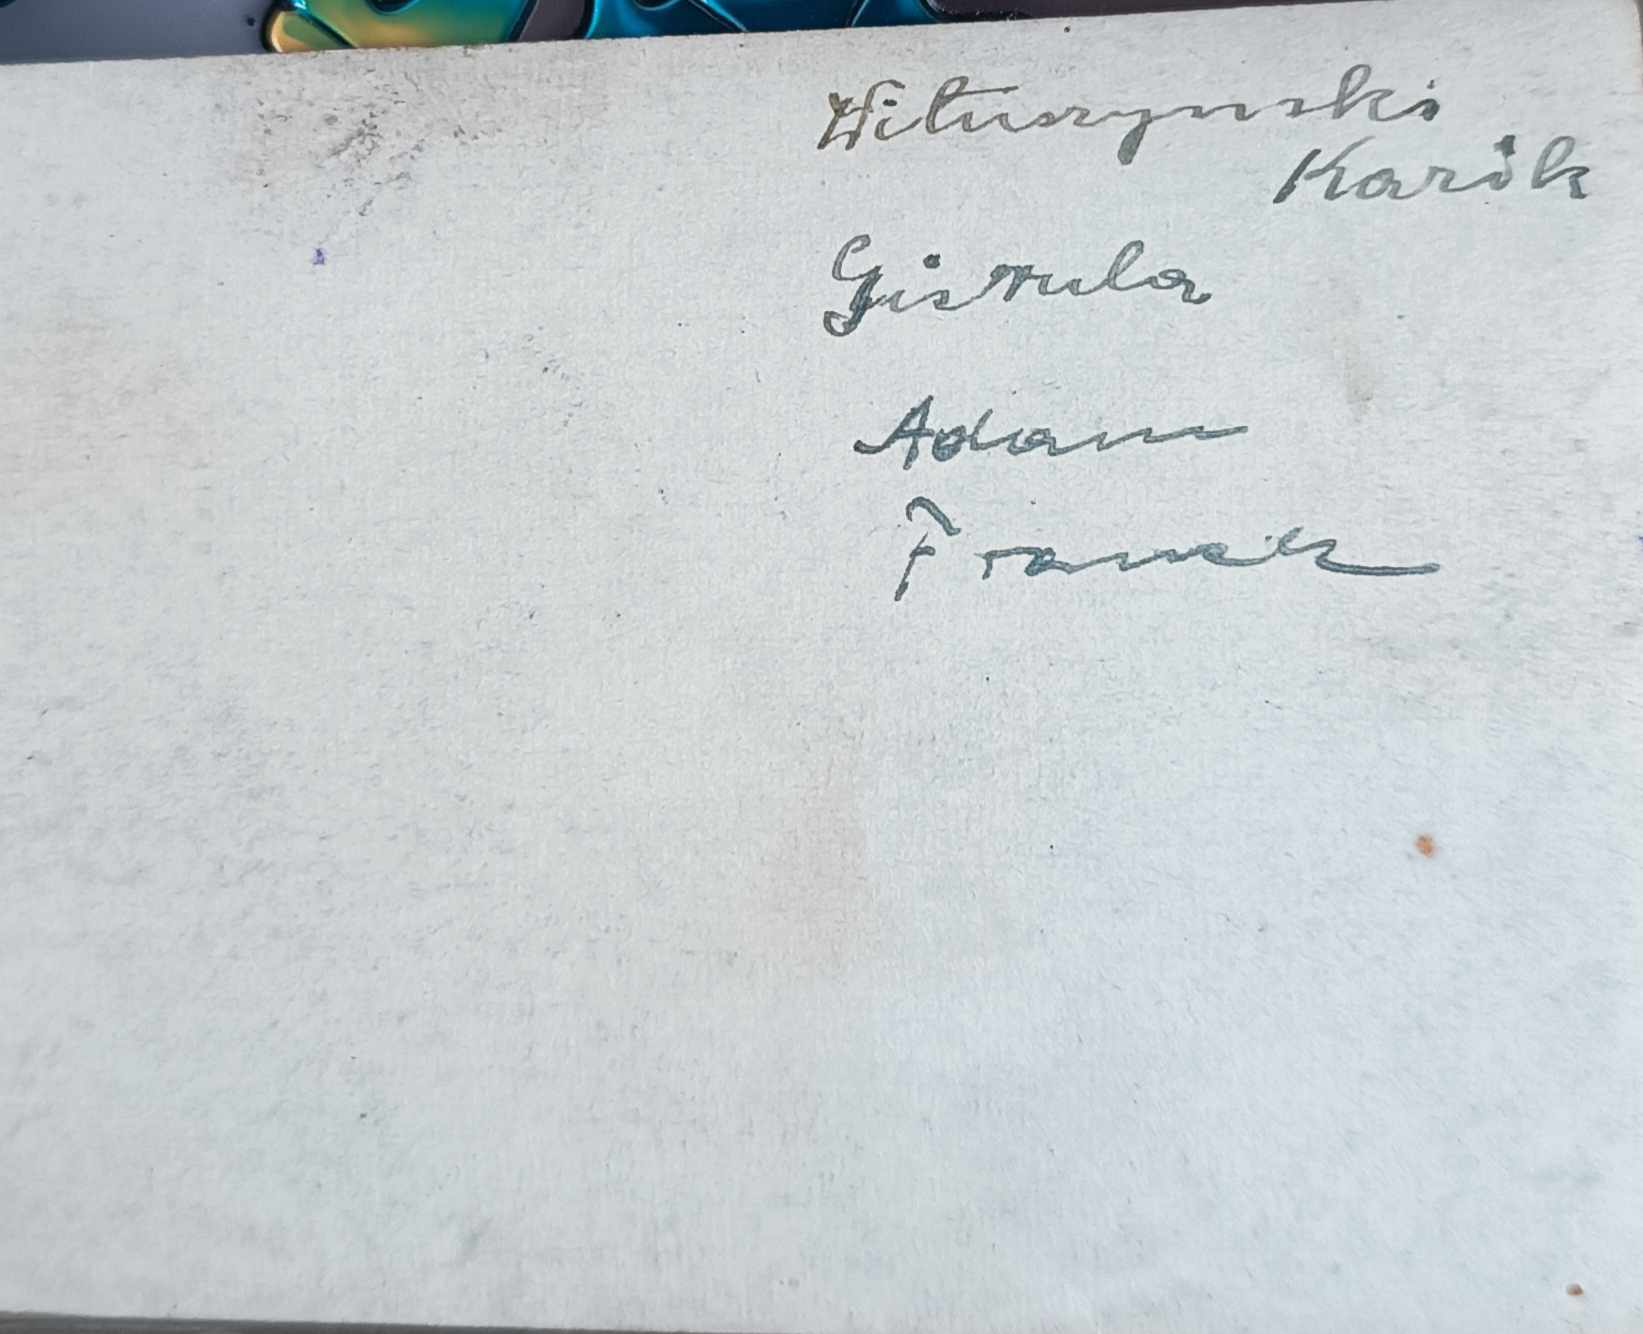 Wituszynski
Karik
Gistula
Adam
Franek